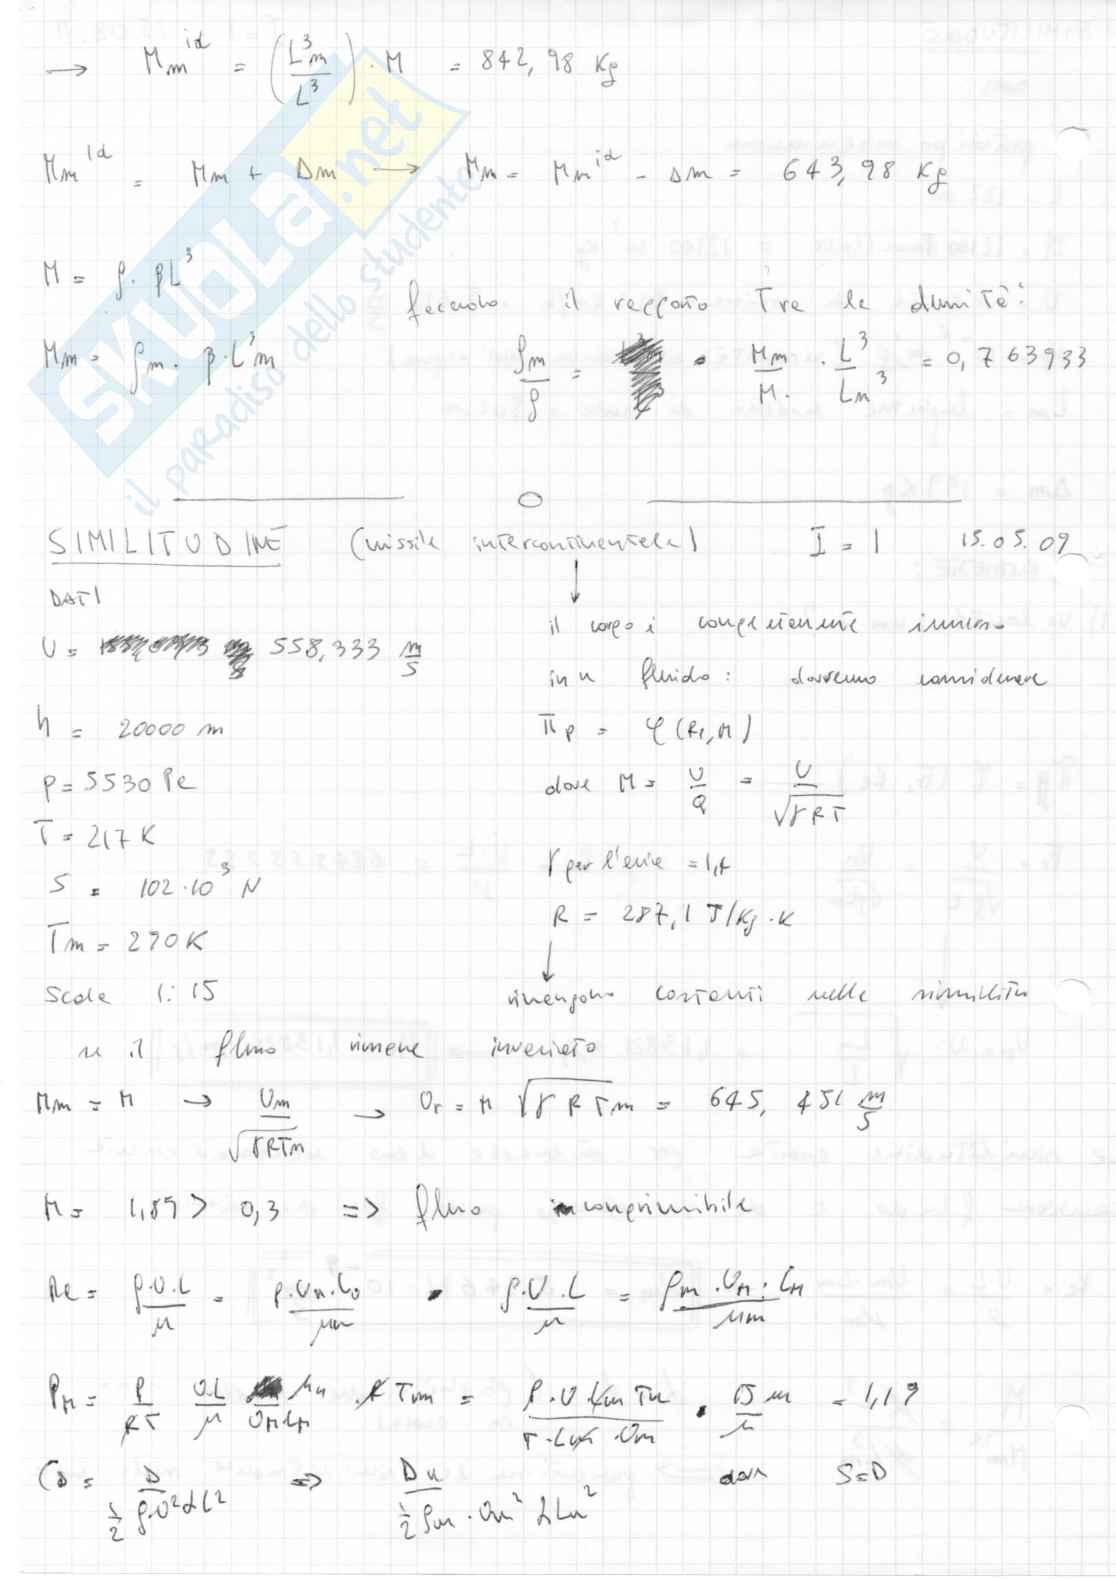 → Mm^id = (L³m / L³) · M = 842,98 Kg
Mm^id = Mm + Δm → Mm = Mm^id - Δm = 643,98 Kg
M = ρ · βL³
facciamo il rapporto tra le densità:
Mm = ρm · β · L³m
ρm/ρ = Mm/M · L³/Lm³ = 0,763933
SKUOLA.net
il paradiso dello studente
SIMILITUDINE (missile intercontinentale) I = 1 15.05.09
DATI
U = 558,333 m/s
h = 20000 m
p = 5530 Pa
T = 217 K
S = 102·10³ N
Tm = 290K
Scala 1:15
il corpo è completamente immerso
in un fluido: dovremo considerare
πp = φ(Re,M)
dove M = U/a = U/√γRT
γ per l'aria = 1,4
R = 287,1 J/Kg·K
rimangono costanti nella similitu
se il flusso rimane invariato
Mm = M → Um/√γRTm → Ur = M √γRTm = 645,451 m/s
M = 1,89 > 0,3 => flusso comprimibile
Re = ρ·U·L/μ = ρ·Um·Lm/μm · ρ·U·L/μ = ρm·UM·LM/μm
PM = P/RT UL/μ μm/UMLM · R Tm = P·U·Lm Tm/T·Lm·Um · 15 μm/μ = 1,19
CD = D/½ρ·U²αL² => Dm/½ρm·Um²αLm² dove S=D